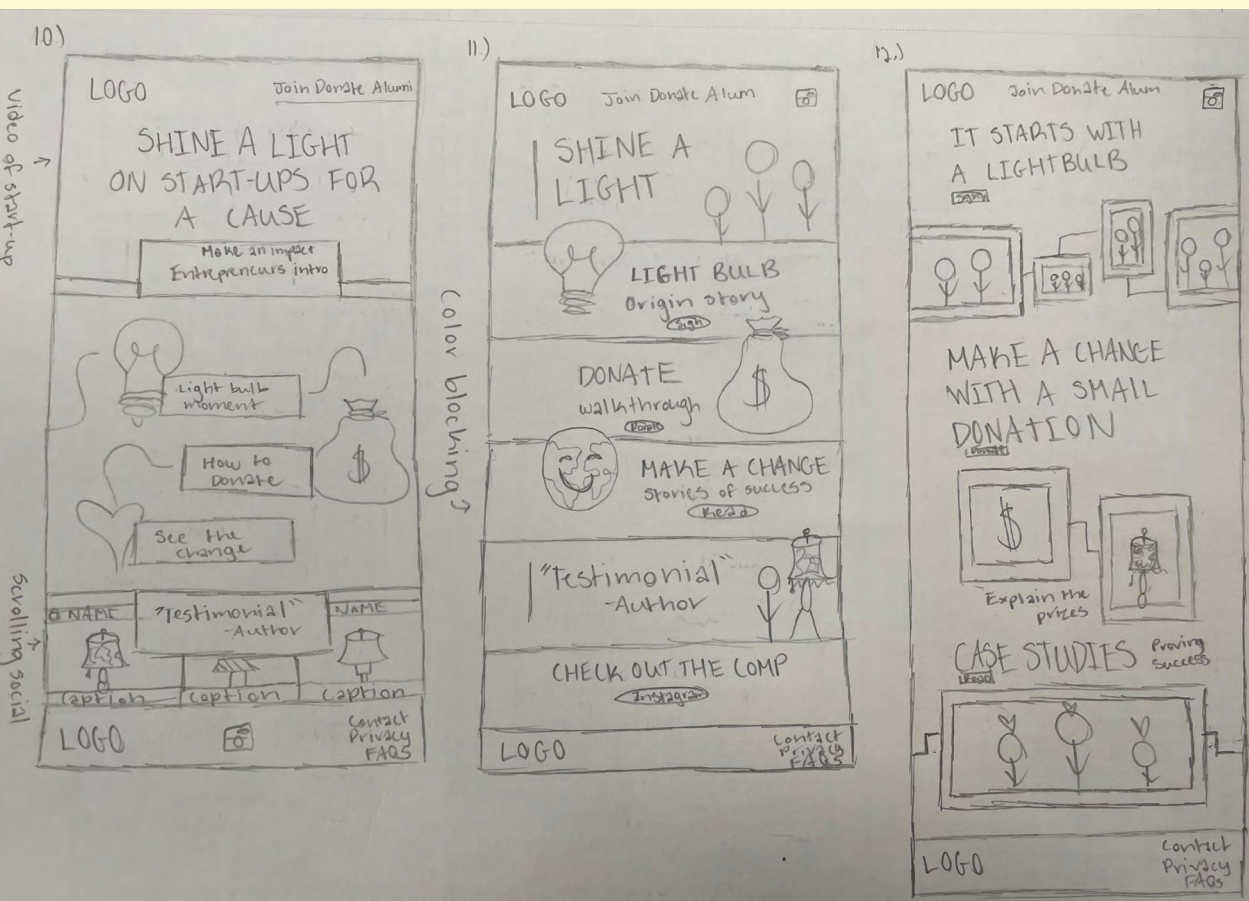 10.)
LOGO
Join Donate Alumni
video of start-up
SHINE A LIGHT
ON START-UPS FOR
A CAUSE
Make an impact
Entrepreneurs intro
Light bulb
moment
How to
Donate
$
See the
change
Scrolling social
NAME
"Testimonial"
-Author
NAME
Caption
Caption
Caption
LOGO
Contact
Privacy
FAQS
11.)
Color blocking
LOGO
Join Donate Alum
SHINE A
LIGHT
LIGHT BULB
Origin story
Sign
DONATE
walkthrough
Donate
$
MAKE A CHANGE
stories of success
Read
"Testimonial"
-Author
CHECK OUT THE COMP
Instagram
LOGO
Contact
Privacy
FAQS
12.)
LOGO
Join Donate Alum
IT STARTS WITH
A LIGHTBULB
MAKE A CHANGE
WITH A SMALL
DONATION
Donate
$
Explain the
prizes
CASE STUDIES
Proving
success
Read
LOGO
Contact
Privacy
FAQs